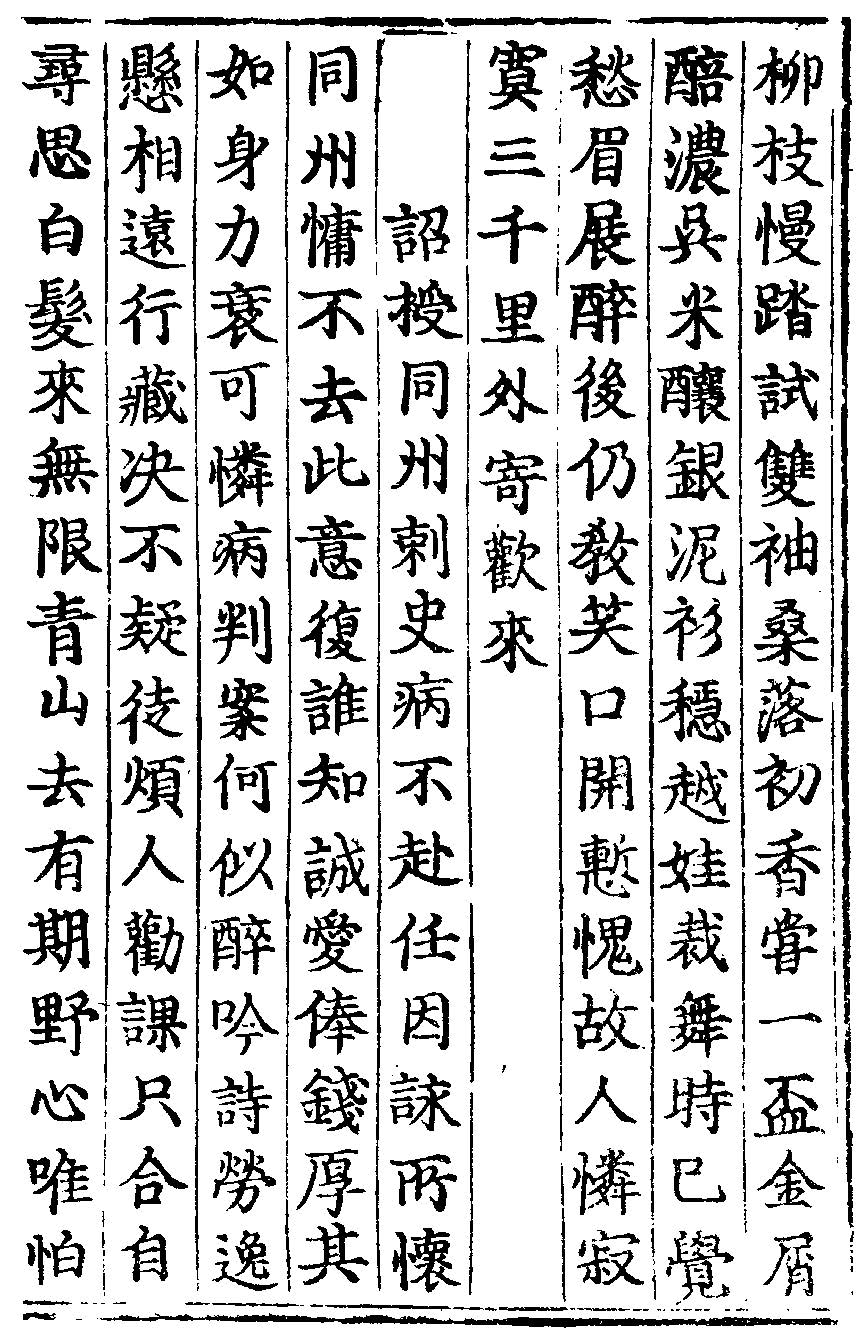 柳枝慢踏試雙袖桑落初香嘗一盃金屑
醅濃吳米釀銀泥衫穩越娃裁舞時已覺
愁眉展醉後仍教笑口開慙愧故人憐寂
寞三千里外寄歡來
詔授同州刺史病不赴任因詠所懷
同州慵不去此意復誰知誠愛俸錢厚其
如身力衰可憐病判案何似醉吟詩勞逸
懸相遠行藏決不疑徒煩人勸課只合自
尋思白髮來無限青山去有期野心唯怕